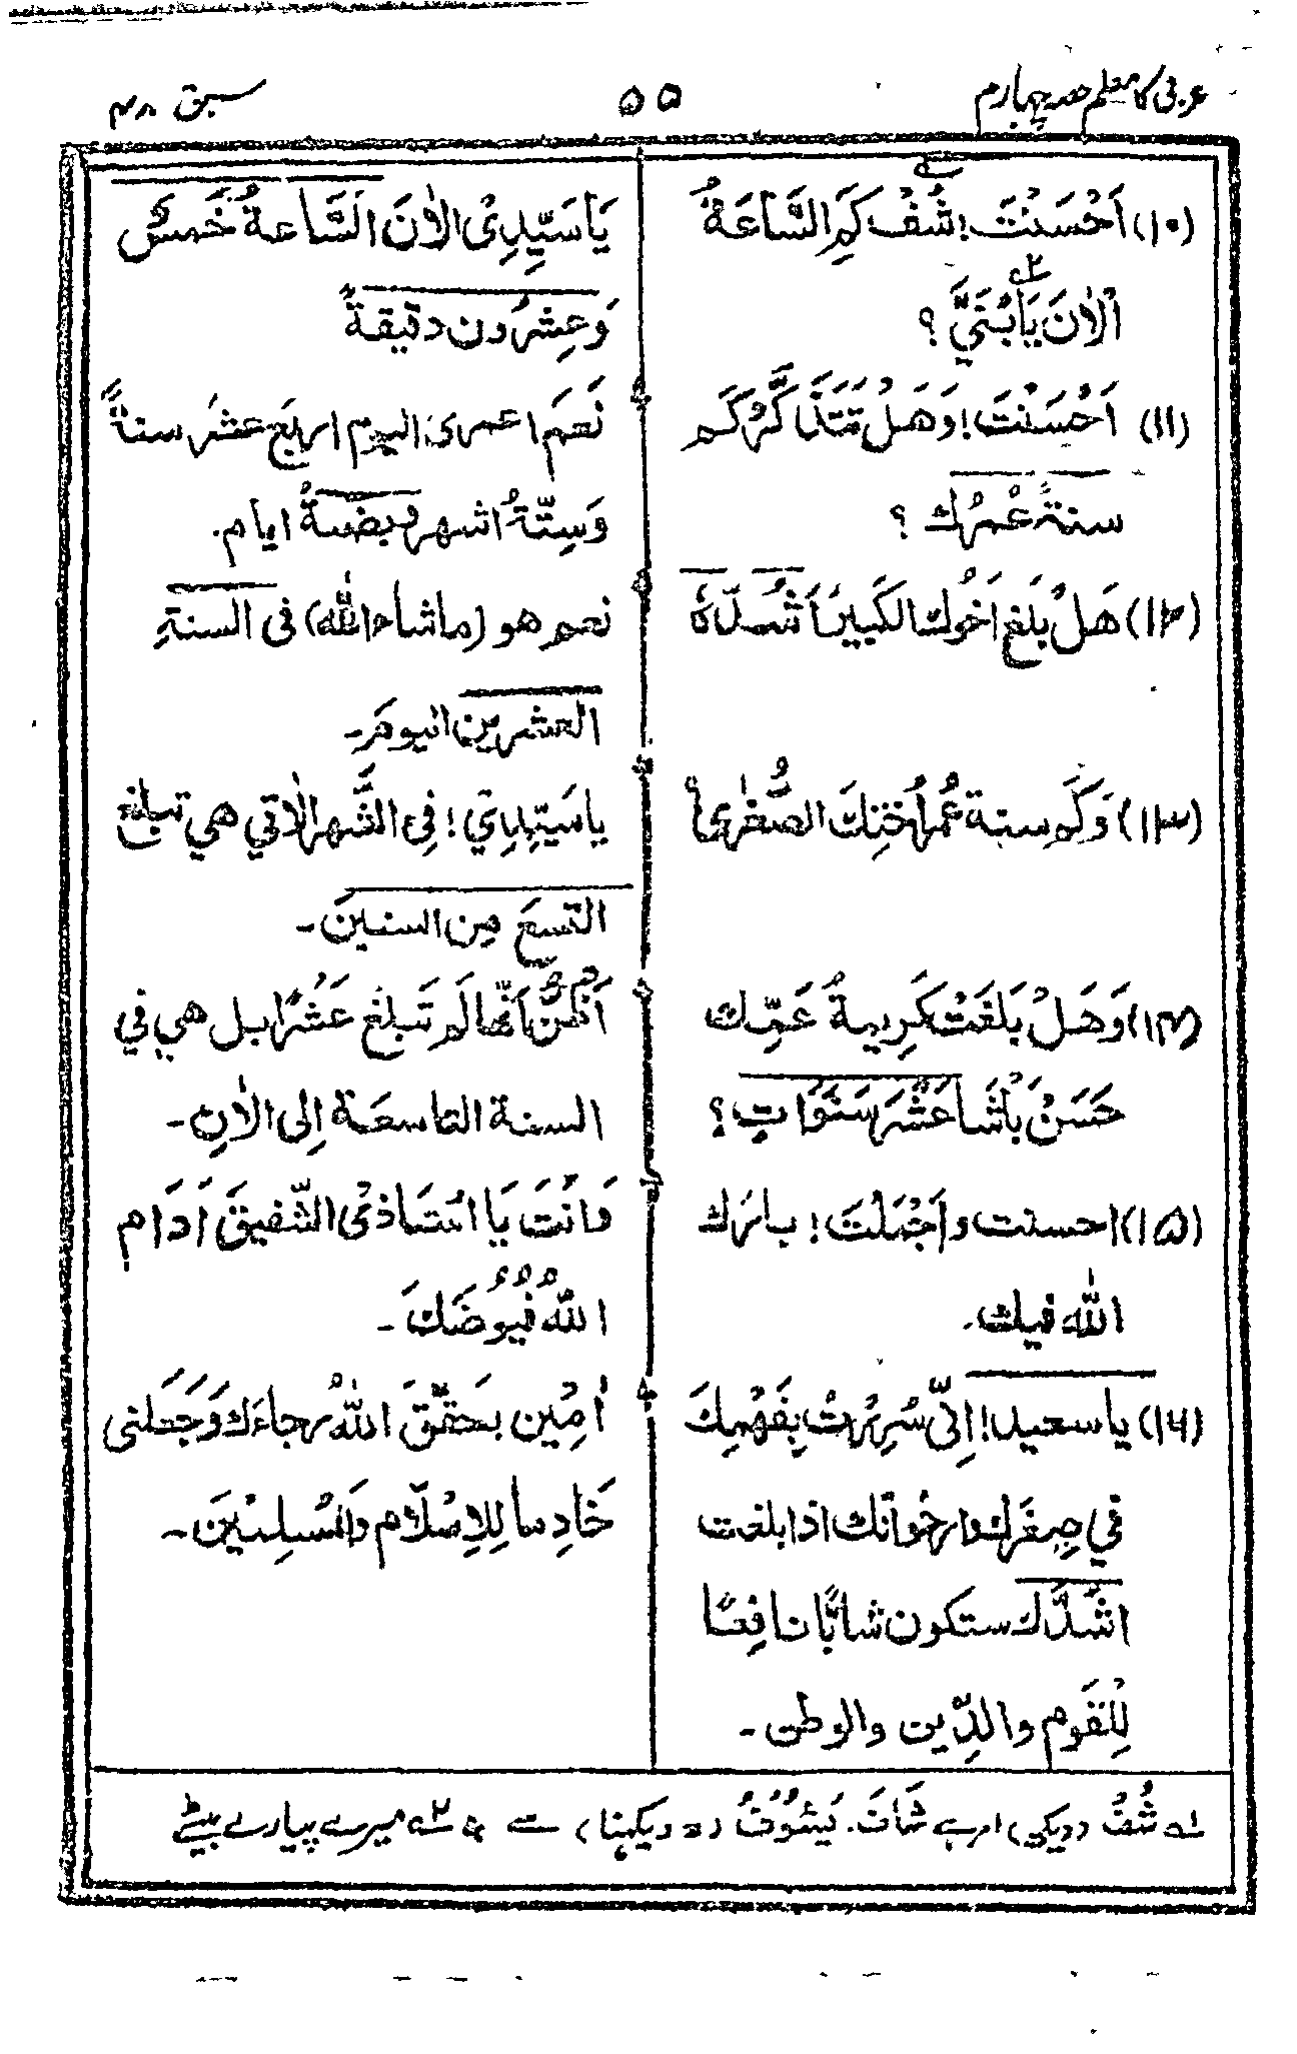 عربی کا معلم حصہ چہارم
۵۵
سبق ۴۸
(۱۰) اَحْسَنْتَ! شُفْ کَمِ السَّاعَةُ
اَلْاٰنَ یَا بُنَيَّ ؟
یَا سَیِّدِیْ الاٰنَ السَّاعةُ خَمسٌ
وَعِشرُون دقیقةً
(۱۱) اَحْسَنْتَ! وَهَلْ تَتَذَکَّرُ کَم
سنةً عُمرُك ؟
نَعَم اعمری الیوم اربعَ عشرَ سنةً
وَسِتّةُ اشهر وبضعةُ ایام.
(۱۲) هَلْ بَلَغ اَخُوك الکَبیرُ اَشُدَّهٗ
نعم هو (ماشاء اللّٰه) فی السنةِ
العشرین الیومَ۔
(۱۳) وَکَم سنة عُمرُ اُختِكَ الصُّغرٰی
یا سَیّدِي! فِی الشَّهر الاٰتي هي تبلغ
التسعَ مِن السنینَ۔
(۱۴) وَهَلْ بَلَغَتْ کَرِیمةُ عَمِّك
حَسَنْ بَاشَا عَشْرَ سَنَوَاتٍ؟
اَظُنُّ اَنّها لَم تَبلغ عَشْرًا بل هي في
السنة التاسعَة اِلی الاٰنِ۔
(۱۵) احسنت و اَجْمَلْتَ! بارَك
اللّٰه فیك.
وَاَنْتَ یَا اُستَاذِیْ الشّفیقَ اَدَام
اللّٰهُ فُیُوْضَكَ۔
(۱۶) یا سعید! اِنّی سُرِرْتُ بِفَهْمِكَ
في صِغَرِك وارجُو اَنّك اذا بلغت
اشُدَّك ستکون شابًّا نافِعًا
لِلْقَوم والدِّین والوطن۔
اٰمِیْن حَقَّقَ اللّٰهُ رجاءَك وَجَعَلَنی
خَادِما لِلاِسْلَام وَالمُسلِمِیْنَ۔
لہ شُفْ (دیکھ) امر ہے شَافَ۔ یَشُوْفُ (= دیکھنا) سے ۲ہ میرے پیارے بیٹے